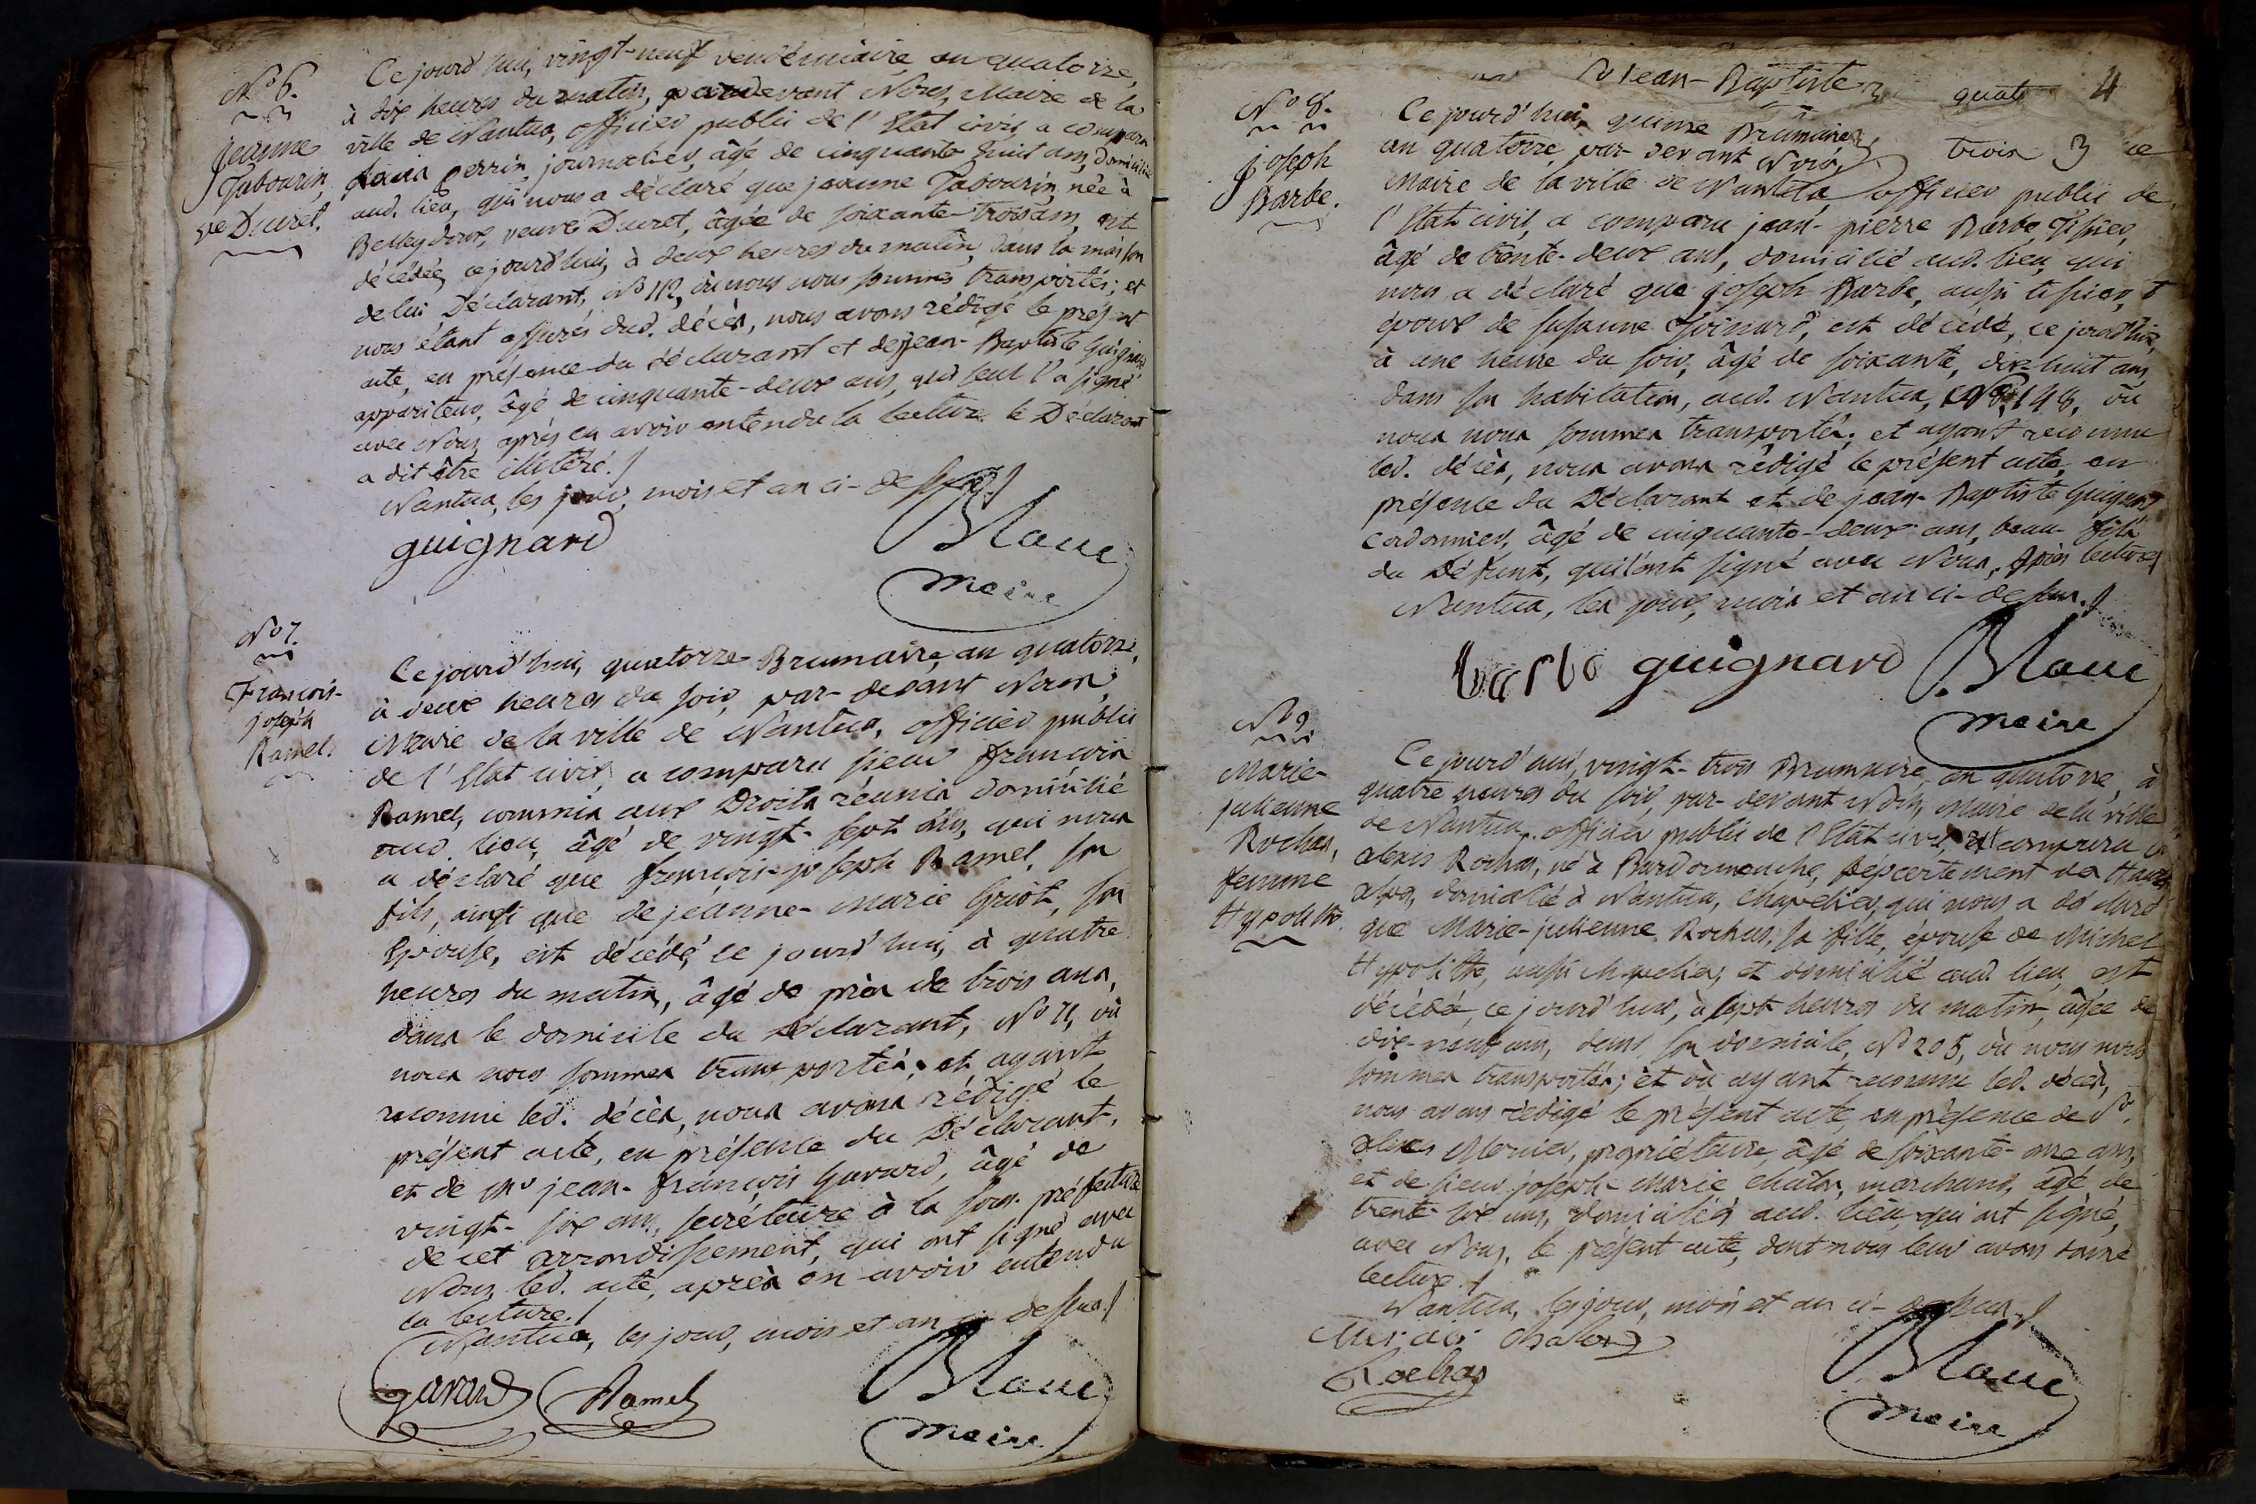 N.o 6.
Jeanne
Tabourin,
ve Duret.
Ce jourd'hui, vingt-neuf vendémiaire an quatorze,
à dix heures du matin, pardevant Nous, Maire de la
ville de Nantua, officier public de l'Etat civil, a comparu
perrin, journalier, âgé de cinquante huit ans, domicilié
aud. lieu, qui nous a déclaré que jeanne Tabourin, née à
Belleydoux, veuve Duret, âgée de soixante-trois ans, est
décédée, ce jourd'hui, à deux heures du matin, dans la maison
de lui Déclarant, N.o 112, où nous nous sommes transportés; et
nous étant assurés dud. décès, nous avons rédigé le présent
acte, en présence du déclarant et de jean-Baptiste Guignard
appariteur, âgé de cinquante-deux ans, qui seul l'a signé
avec Nous, après en avoir entendu la lecture. le Déclarant
a dit être illitéré./
Nantua, les jour, mois et an ci-dessus./
guignard
Blanc
maire
N.o 7.
François-
joseph
Ramel.
Ce jourd'hui, quatorze Brumaire, an quatorze,
à deux heures du soir, par-devant Nous,
Maire de la ville de Nantua, officier public
de l'Etat civil, a comparu sieur françois
Ramel, commis aux Droits réunis, domicilié
aud. lieu, âgé de vingt-sept ans, qui nous
a déclaré que françois-joseph Ramel, son
fils, ainsi que de jeanne-marie Griot, son
Epouse, est décédé, ce jourd'hui, à quatre
heures du matin, âgé de près de trois ans,
dans le domicile du Déclarant, N.o 71, où
nous nous sommes transportés; et ayant
reconnu led. décès, nous avons rédigé le
présent acte, en présence du Déclarant,
et de Mr jean-françois Gavard, âgé de
vingt-six ans, secrétaire à la sous-préfecture
de cet arrondissement, qui ont signé avec
Nous, led. acte, après en avoir entendu
la lecture./
Nantua, les jour, mois et an ci-dessus./
gavard
Ramel
Blanc
maire
jean-Baptiste
quatre 4
trois 3
N.o 8.
joseph
Barbe.
Ce jourd'hui, quinze Brumaire,
an quatorze, par-devant Nous,
Maire de la ville de Nantua, officier public de
l'Etat civil, a comparu jean-pierre Barbe, Tissier,
âgé de trente-deux ans, domicilié aud. lieu, qui
nous a déclaré que joseph Barbe, aussi tissier,
époux de Susanne, est décédé, ce jourd'hui,
à une heure du soir, âgé de soixante, dix-huit ans,
dans son habitation, aud. Nantua, N.o 148, où
nous nous sommes transportés; et ayant reconnu
led. décès, nous avons rédigé le présent acte, en
présence du Déclarant et de jean-Baptiste Guignard
cordonnier, âgé de cinquante-deux ans, beau-fils
du Défunt, qui l'ont signé avec Nous, après lecture/
Nantua, les jour, mois et an ci-dessus./
barbe guignard
Blanc
maire
N.o 9.
Marie-
julienne
Rochas,
femme
Hypolitte.
Ce jourd'hui, vingt-trois Brumaire, an quatorze, à
quatre heures du soir, par-devant Nous, Maire de la ville
de Nantua, officier public de l'Etat civil, a comparu
alexis Rochas, né à Bardonnenche, Département des Hautes
alpes, domicilié à Nantua, chapelier, qui nous a déclaré
que Marie-julienne Rochas, sa fille, épouse de Michel
Hypolitte, aussi chapelier, et domicilié aud. lieu, est
décédée, ce jourd'hui, à sept heures du matin, âgée de
dix-neuf ans, dans son domicile, N.o 205, où nous nous
sommes transportés; et où ayant reconnu led. décès,
nous avons rédigé le présent acte, en présence de Sr.
alexis Mercier, propriétaire, âgé de soixante-onze ans,
et de sieur joseph-Marie chalon, marchand, âgé de
trente-six ans, domiciliés aud. lieu, qui ont signé,
avec Nous, le présent acte, dont nous leur avons donné
lecture./
Nantua, les jour, mois et an ci-dessus./
chalon
Rochas
Blanc
maire